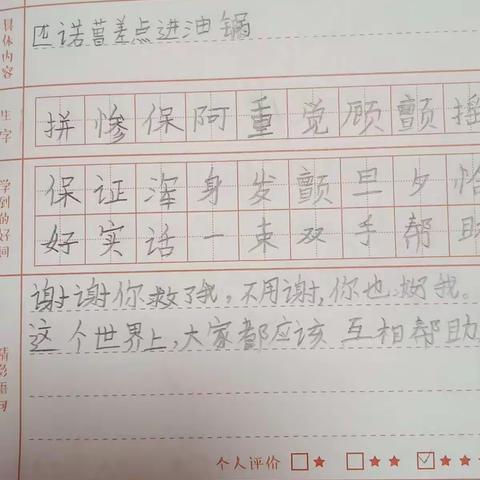 具体内容
匹诺曹差点进油锅
生字
拼惨保阿重觉顾颤摇
学到的好词
保证浑身发颤旦夕恰
好实话一束双手帮助
精彩语句
谢谢你救了我，不用谢，你也救我。
这个世界上，大家都应该互相帮助
个人评价 □★ □★★ ☑★★